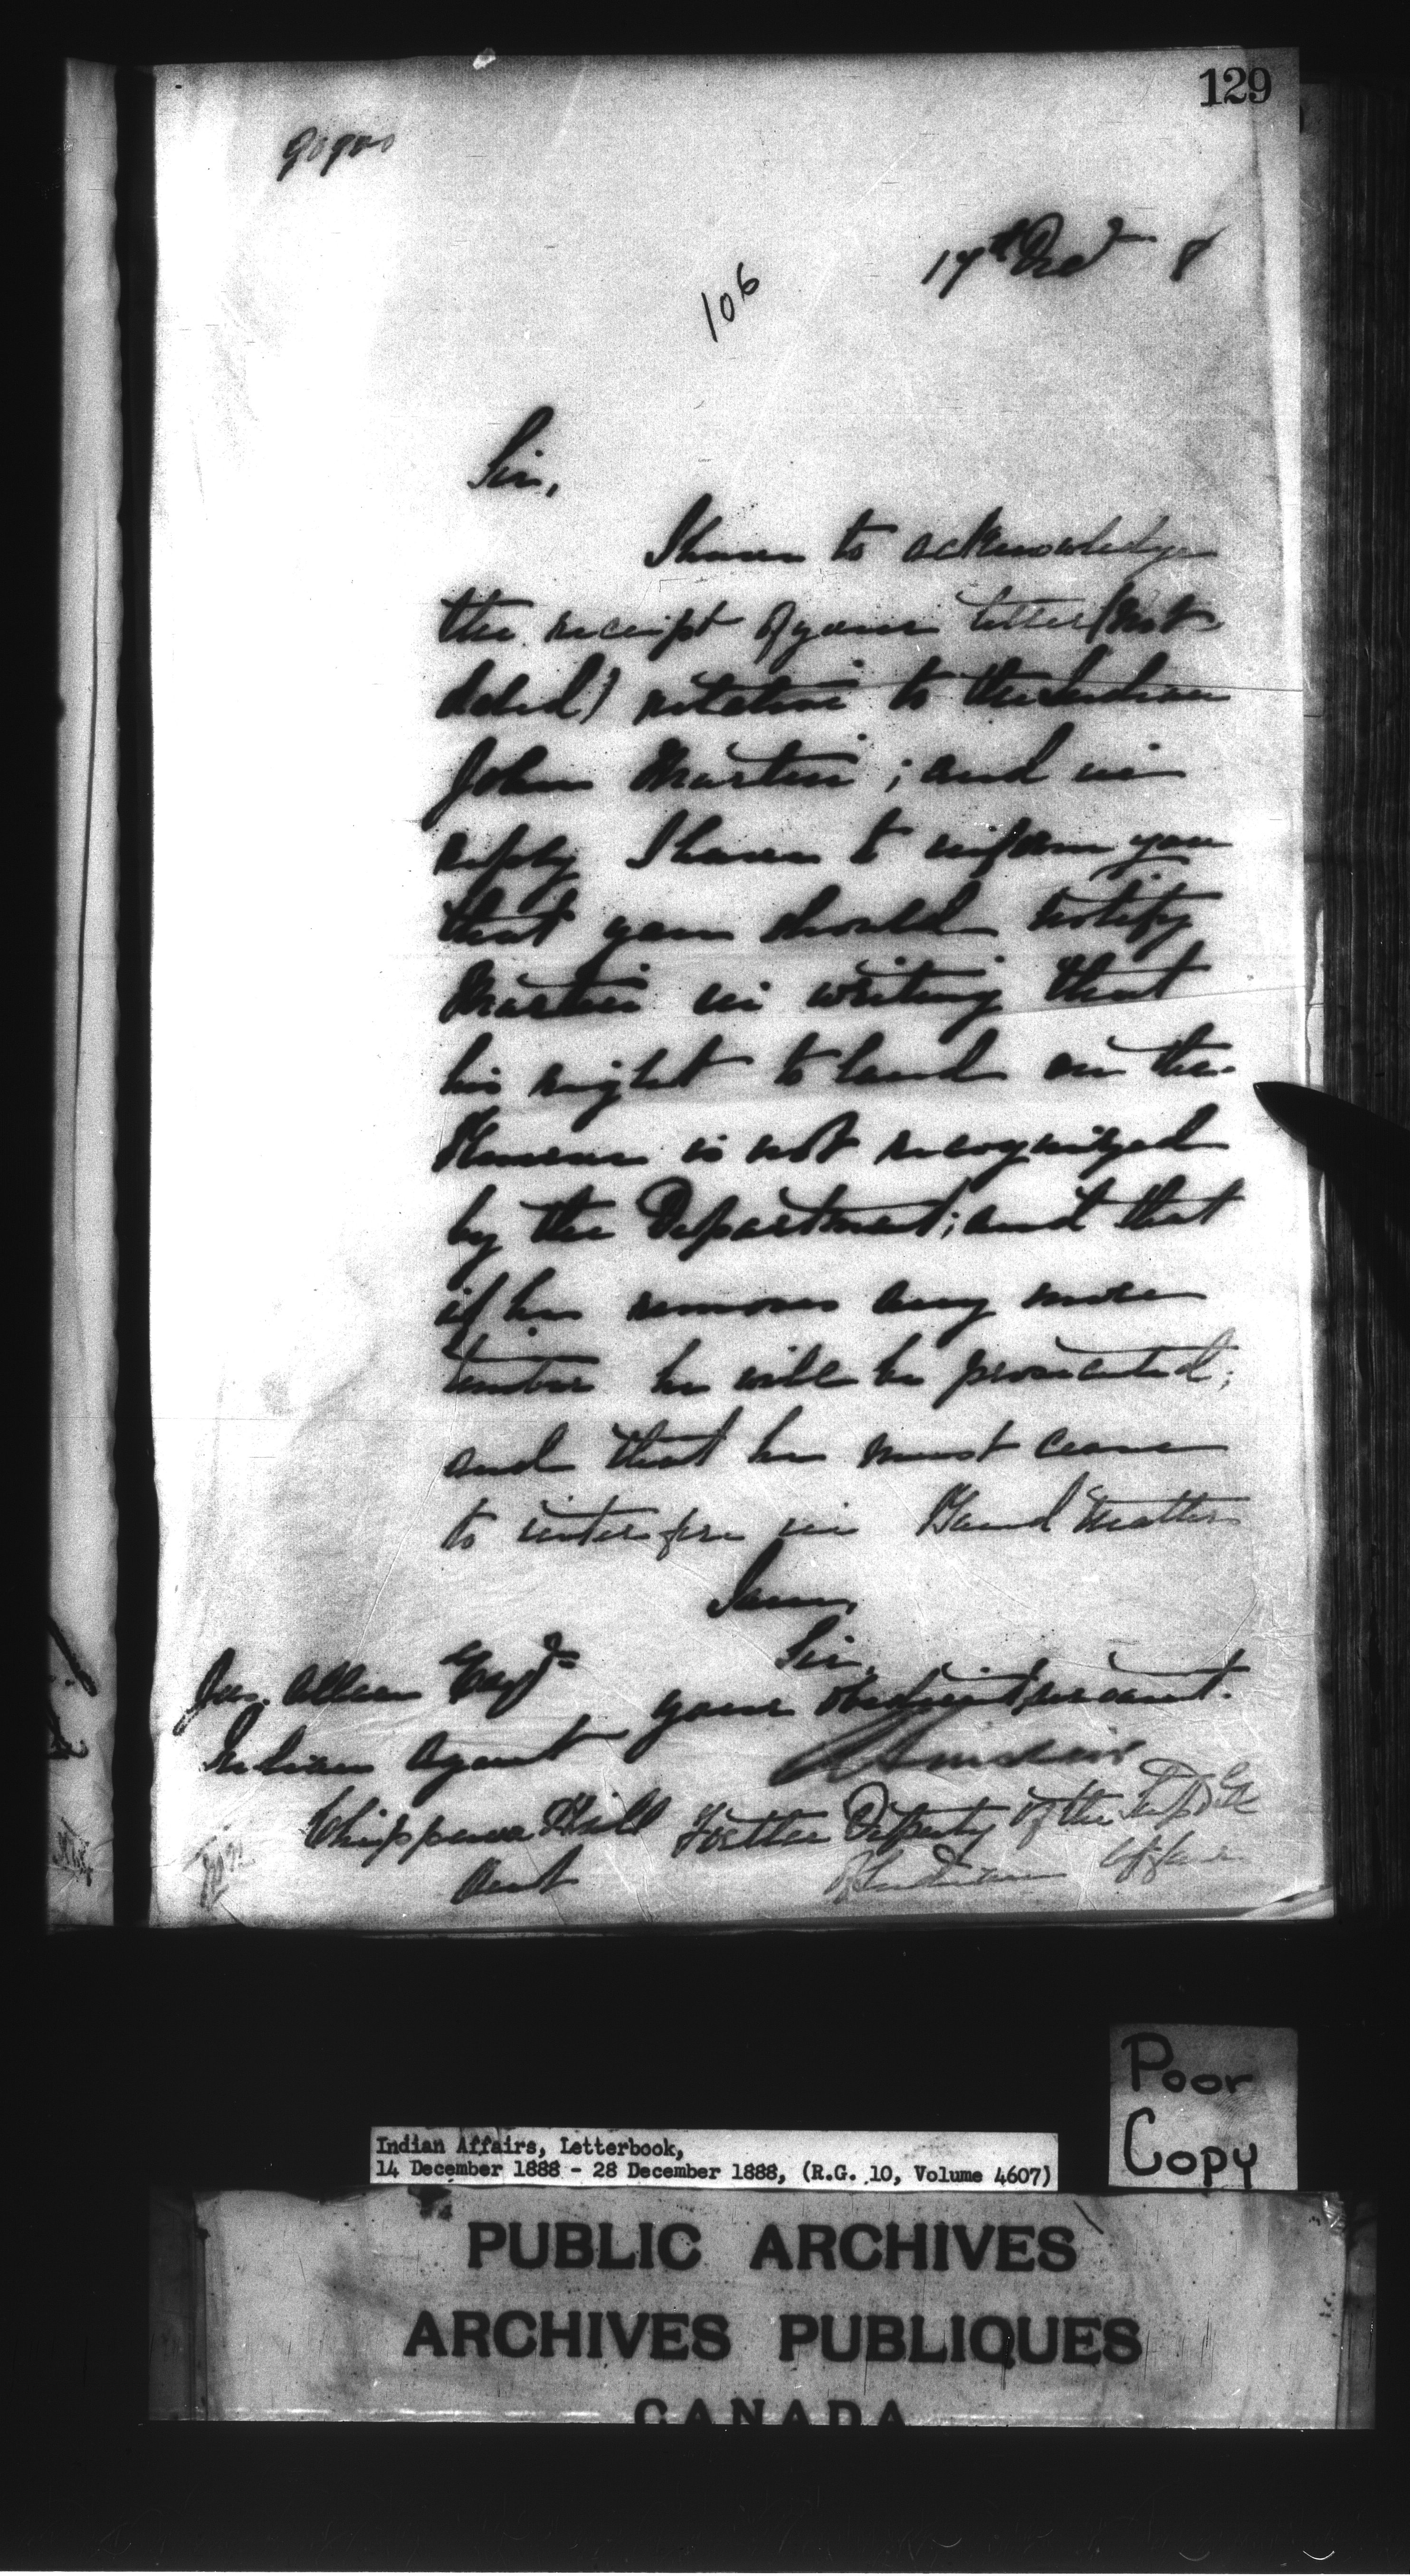 129
90900
106
17th Decr 8
Sir,
I have to acknowledge
the receipt of your letter (not
dated) relative to the Indian
John Martin; and in
reply I have to inform you
that you should notify
Martin in writing that
his right to land on the
Reserve is not recognized
by the Department; and that
if he removes any more
timber he will be prosecuted;
and that he must cease
to interfere in Band Matters
I am,
Sir,
Your obedient servant.
Jas. Allen Esqr
Indian Agent
Chippewa Hill
Ont
For the Deputy of the Supt Gl
of Indian Affairs
Poor
Copy
Indian Affairs, Letterbook,
14 December 1888 - 28 December 1888, (R.G. 10, Volume 4607)
PUBLIC ARCHIVES
ARCHIVES PUBLIQUES
CANADA